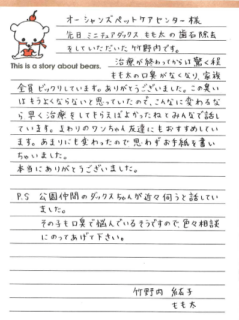 オーシャンズペットケアセンター様
先日ミニチュアダックス もも太の歯石除去
をしていただいた竹野内です。
This is a story about bears.
治療が終わってからは驚く程
もも太の口臭がなくなり、家族
全員ビックリしています。ありがとうございました。この臭い
はもうよくならないと思っていたので、こんなに変わるな
ら早く治療をしてもらえばよかったねとみんなで話し
ています。まわりのワンちゃん友達にもおすすめしてい
ます。あまりにも変わったので思わずお手紙を書い
ちゃいました。
本当にありがとうございました。
P.S 公園仲間のダックスちゃんが近々伺うと話してい
ました。
その子も口臭で悩んでいるそうですので、色々相談
にのってあげて下さい。
竹野内 結子
もも太